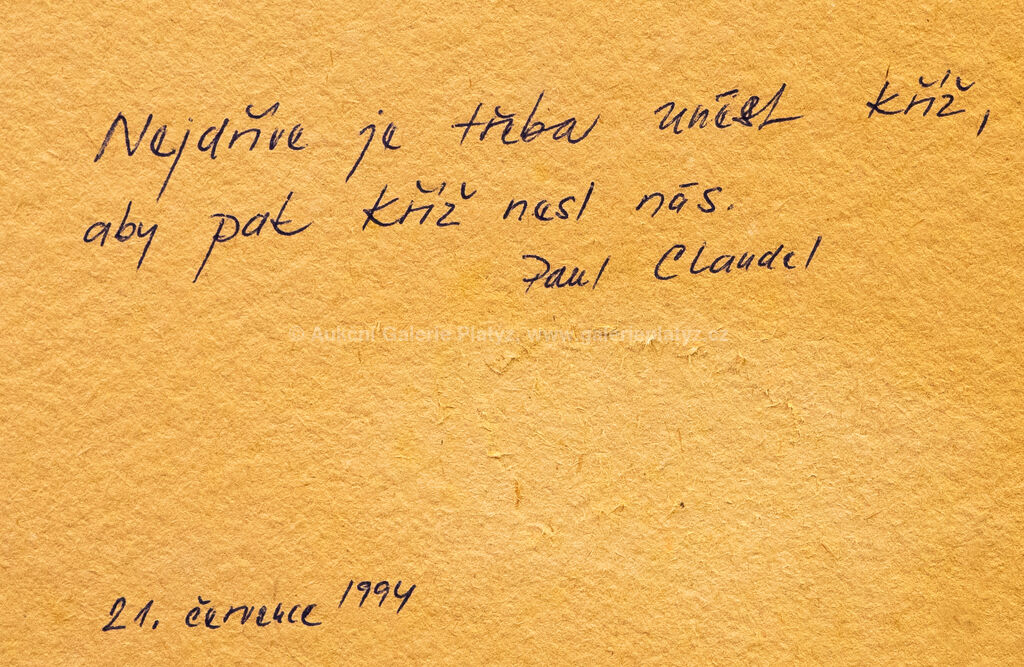 Nejdříve je třeba unést kříž,
aby pak kříž nesl nás.
Paul Claudel
© Aukční Galerie Platýz, www.galerieplatyz.cz
21. července 1994